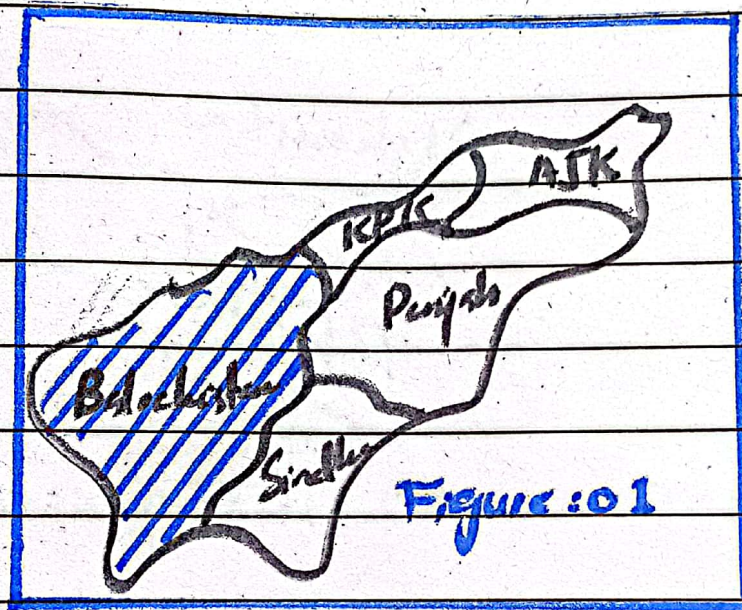 AJK
KPK
Punjab
Balochistan
Sindh
Figure : 01